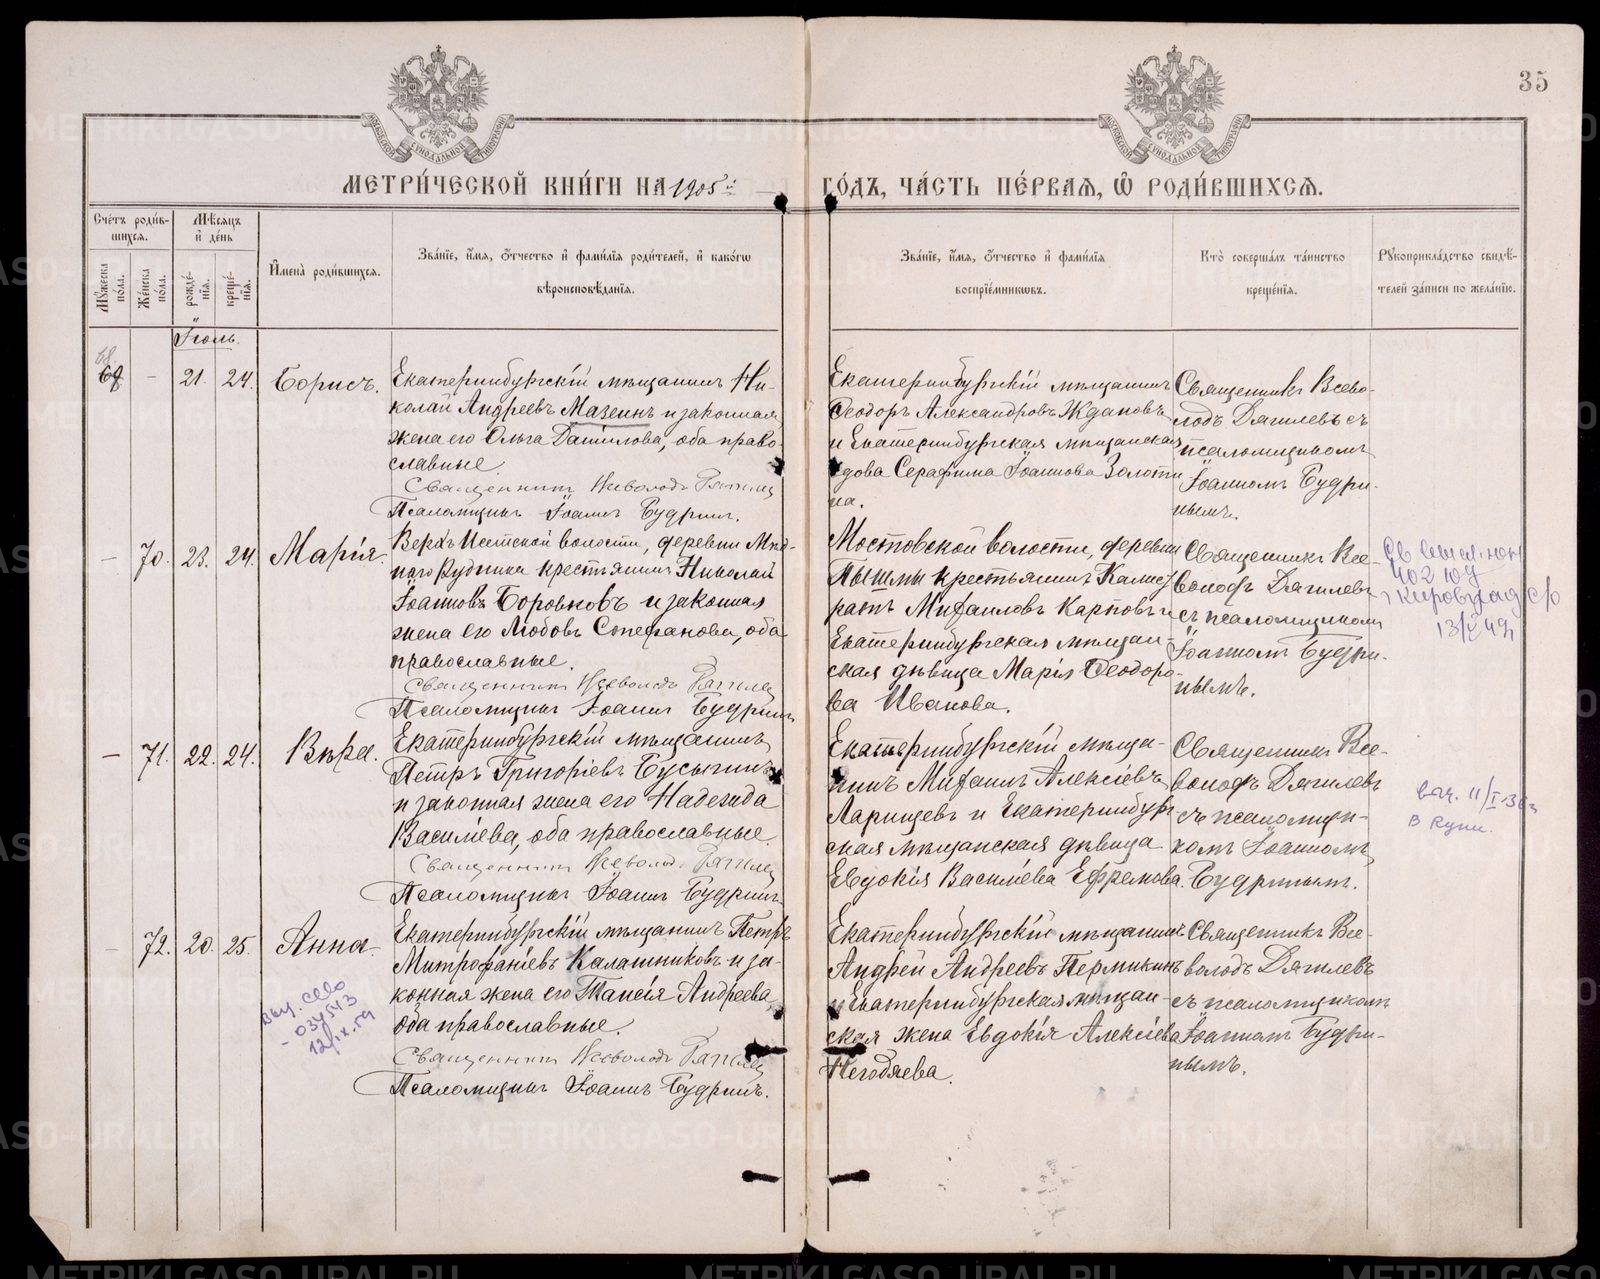 35
МЕТРИ́ЧЕСКОЙ КНИ́ГИ НА 1905 й ГО́ДЪ, ЧА́СТЬ ПЕ́РВАЯ, Ѽ РОДИ́ВШИХСѦ.
Сче́тъ роди́в-
шихсѧ.
Мꙋ́жеска по́ла.
Же́нска по́ла.
Мѣ́сѧцъ и҆ де́нь
рожде́-нїѧ.
креще́-нїѧ.
И҆мена̀ роди́вшихсѧ.
Зва́нїе, и҆́мѧ, ѻ҆́тчество и҆ фами́лїѧ роди́телей, и҆ како́гѡ
вѣроисповѣ́данїѧ.
Зва́нїе, и҆́мѧ, ѻ҆́тчество и҆ фами́лїѧ
воспрїе́мникѡвъ.
Кто̀ соверша́лъ та́инство
креще́нїѧ.
Рꙋкоприкла́дство свидѣ́-
телей за́писи по жела́нїю.
Іюль.
68.
69 - 21. 24. Борисъ.
Екатеринбургскій мѣщанинъ Ни-
колай Андреевъ Мазеинъ и законная
жена его Ольга Данилова, оба право-
славные.
Священникъ Всеволодъ Дягилевъ
Псаломщикъ Іоаннъ Будринъ.
Екатеринбургскій мѣщанинъ
Ѳеодоръ Александровъ Ждановъ
и Екатеринбургская мѣщанская
вдова Серафима Іоаннова Золоти
на.
Священникъ Всево-
лодъ Дягилевъ съ
псаломщикомъ
Іоанномъ Будри-
нымъ.
- 70. 23. 24. Марія.
Верхъ Исетской волости, деревни Мѣд-
наго Рудника крестьянинъ Николай
Іоанновъ Боровковъ и законная
жена его Любовь Стефанова, оба
православные.
Священникъ Всеволодъ Дягилевъ
Псаломщикъ Іоаннъ Будринъ
Мостовской волости, деревни
Пышмы крестьянинъ Калист
ратъ Михаиловъ Карповъ и
Екатеринбургская мѣщан-
ская дѣвица Марія Ѳеодоро-
ва Иванова.
Священникъ Все-
володъ Дягилевъ
съ псаломщикомъ
Іоанномъ Будри-
нымъ.
402
- 71. 22. 24. Вѣра.
Екатеринбургскій мѣщанинъ
Петръ Григоріевъ Бусыгинъ
и законная жена его Надежда
Василіева, оба православные.
Священникъ Всеволодъ Дягилевъ
Псаломщикъ Іоаннъ Будринъ
Екатеринбургскій мѣща-
нинъ Михаилъ Алексіевъ
Ларищевъ и Екатеринбург
ская мѣщанская дѣвица
Евдокія Василіева Ефремова.
Священникъ Все-
володъ Дягилевъ
съ псаломщи-
комъ Іоанномъ
Будринымъ.
- 72. 20. 25. Анна.
Екатеринбургскій мѣщанинъ Петръ
Митрофаніевъ Калашниковъ и за-
конная жена его Таисія Андреева,
оба православные.
Священникъ Всеволодъ Дягилевъ
Псаломщикъ Іоаннъ Будринъ.
Екатеринбургскій мѣщанинъ
Андрей Андреевъ Пермикинъ
и Екатеринбургская мѣщан-
ская жена Евдокія Алексіева
Негодяева.
Священникъ Все-
володъ Дягилевъ
съ псаломщикомъ
Іоанномъ Будри-
нымъ.
034543
METRIKI.GASO-URAL.RU